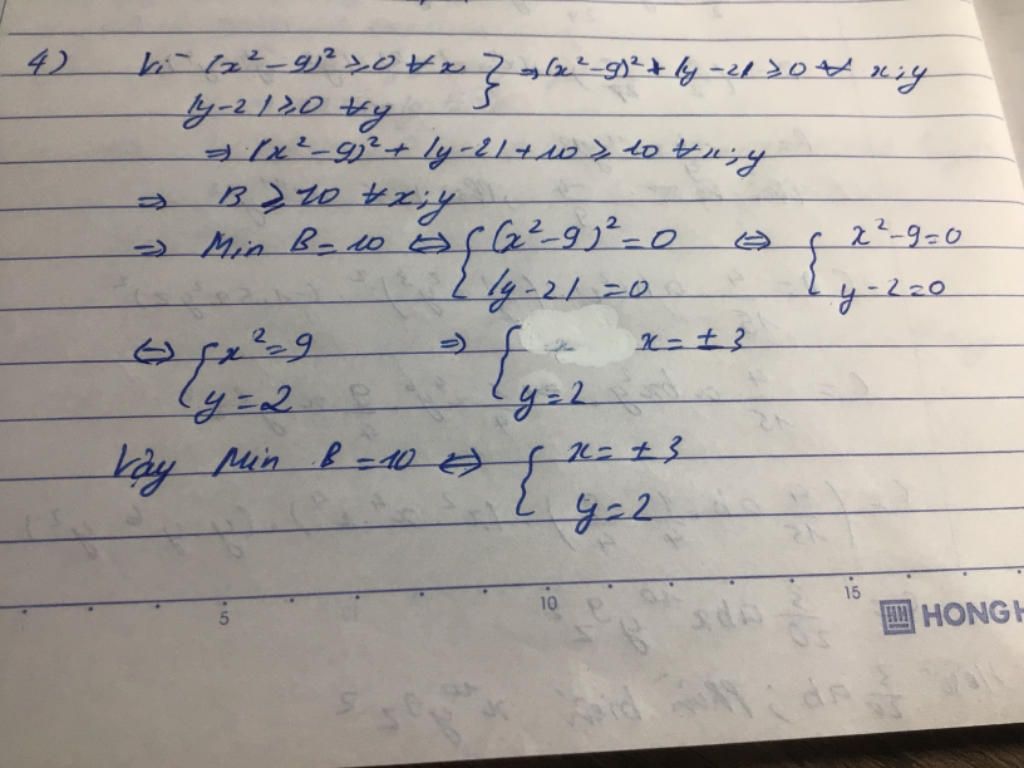 4) Vì (x² - 9)² ≥ 0 ∀ x } ⇒ (x² - 9)² + |y - 2| ≥ 0 ∀ x; y
|y - 2| ≥ 0 ∀ y
⇒ (x² - 9)² + |y - 2| + 10 ≥ 10 ∀ x; y
⇒ B ≥ 10 ∀ x; y
⇒ Min B = 10 ⇔ { (x² - 9)² = 0 ⇔ { x² - 9 = 0
|y - 2| = 0 y - 2 = 0
⇔ { x² = 9 ⇒ { x = ± 3
y = 2 y = 2
Vậy Min B = 10 ⇔ { x = ± 3
y = 2
5 10 15
HONG H